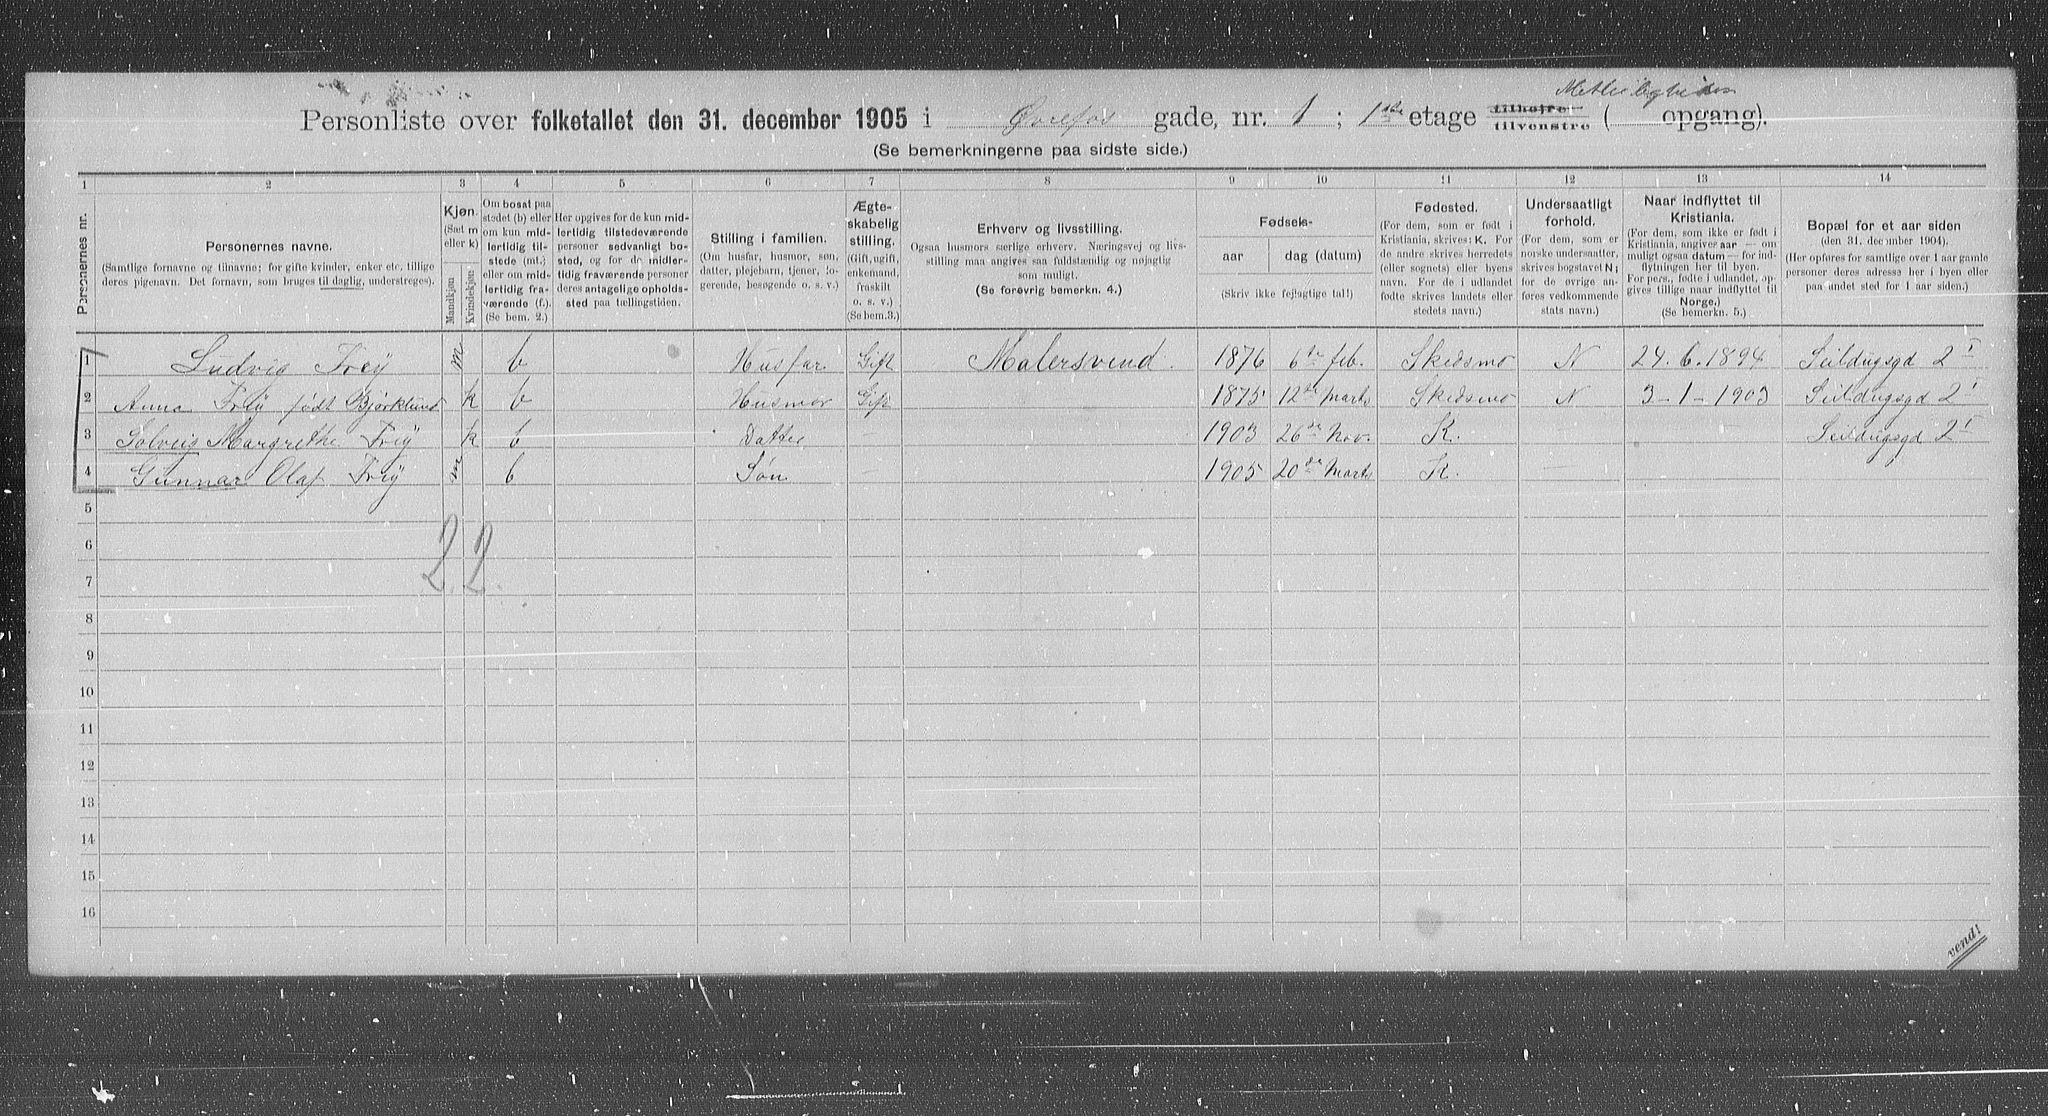 Personliste over folketallet den 31. december 1905 i Øvrefos gade, nr. 1 ; 1ste etage tilhøjre tilvenstre ( opgang).
(Se bemerkningerne paa sidste side.)
1 2 3 4 5 6 7 8 9 10 11 12 13 14
Personernes nr.
Personernes navne.
(Samtlige fornavne og tilnavne; for gifte kvinder, enker etc. tillige deres pigenavn. Det fornavn, som bruges til daglig, understreges).
Kjøn.
(Sæt m eller k)
Mandkjøn
Kvindekjøn
Om bosat paa stedet (b) eller om kun midlertidig tilstede (mt.) eller om midlertidig fraværende (f.). (Se bem. 2.)
Her opgives for de kun midlertidig tilstedeværende personer sedvanligt bosted, og for de midlertidig fraværende personer deres antagelige opholdssted paa tællingstiden.
Stilling i familien.
(Om husfar, husmor, søn, datter, plejebarn, tjener, logerende, besøgende o. s. v.)
Ægteskabelig stilling.
(Gift, ugift, enkemand, fraskilt o. s. v.)
(Se bem.3.)
Erhverv og livsstilling.
Ogsaa husmors særlige erhverv. Næringsvej og livsstilling maa angives saa fuldstændig og nøjagtig som muligt.
(Se forøvrig bemerkn. 4.)
Fødsels-
aar
dag (datum)
(Skriv ikke fejlagtige tal!)
Fødested.
(For dem, som er født i Kristiania, skrives: K. For de andre skrives herredets (eller sognets) eller byens navn. For de i udlandet fødte skrives landets eller stedets navn.)
Undersaatligt forhold.
(For dem, som er norske undersaatter, skrives bogstavet N; for de øvrige anføres vedkommende stats navn.)
Naar indflyttet til Kristiania.
(For dem, som ikke er født i Kristiania, angives aar — om muligt ogsaa datum — for indflytningen her til byen. For pers., fødte i udlandet, opgives tillige naar indflyttet til Norge.)
(Se bemerkn. 5.)
Bopæl for et aar siden
(den 31. december 1904).
(Her opføres for samtlige over 1 aar gamle personer deres adresse her i byen eller paa andet sted for 1 aar siden.)
1 Ludvig Frey m b Husfar Gift Malersvend. 1876 6te feb. Skedsmo N 24.6.1894 Seildugsgd 2 I
2 Anna Frey født Bjørklund k b Husmor Gift 1875 12te Marts Skedsmo N 3-1-1903 Seildugsgd 2 I
3 Solveig Margrethe Frey k b Datter — 1903 26de Nov. K. — Seildugsgd 2 I
4 Gunnar Olaf Frey m b Søn — 1905 20de Marts K. —
5
6
2. 2.
7
8
9
10
11
12
13
14
15
16
vend!